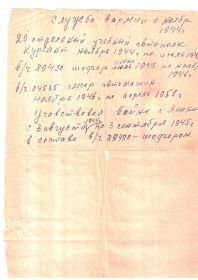 Служба в армии с ноября
1944г.
20 отдельный учебный автополк
Курсант ноябрь 1944г. по июль 1945
в/ч 89490 шофер июль 1945 по ноябрь
1946г.
в/ч 04535 слесарь автомашин
ноябрь 1946г по апрель 1951г
участвовал войне с Японией
с 9 августа 1945 по 3 сентября 1945г
в составе в/ч 89490 - шофером.